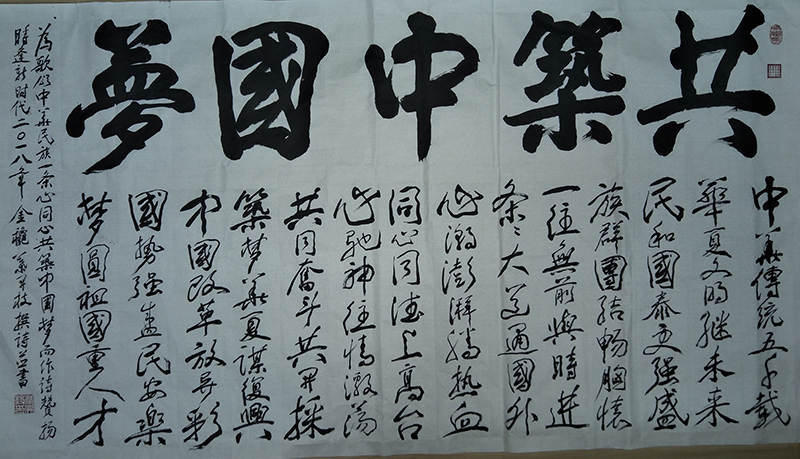 共築中國夢
中華傳統五千載
華夏文明继未来
民和國泰更强盛
族群團结畅胸懷
一往無前與時進
条々大道通國外
心潮澎湃腾热血
同心同德上高台
心驰神往情激荡
共同奮斗共开採
築梦華夏謀復興
中國改革放异彩
國势强盛民安樂
梦圆祖國重人才
為歌颂中華民族一条心同心共築中國梦而作詩贊扬
時逢新时代二〇一八年金龍撰诗并書